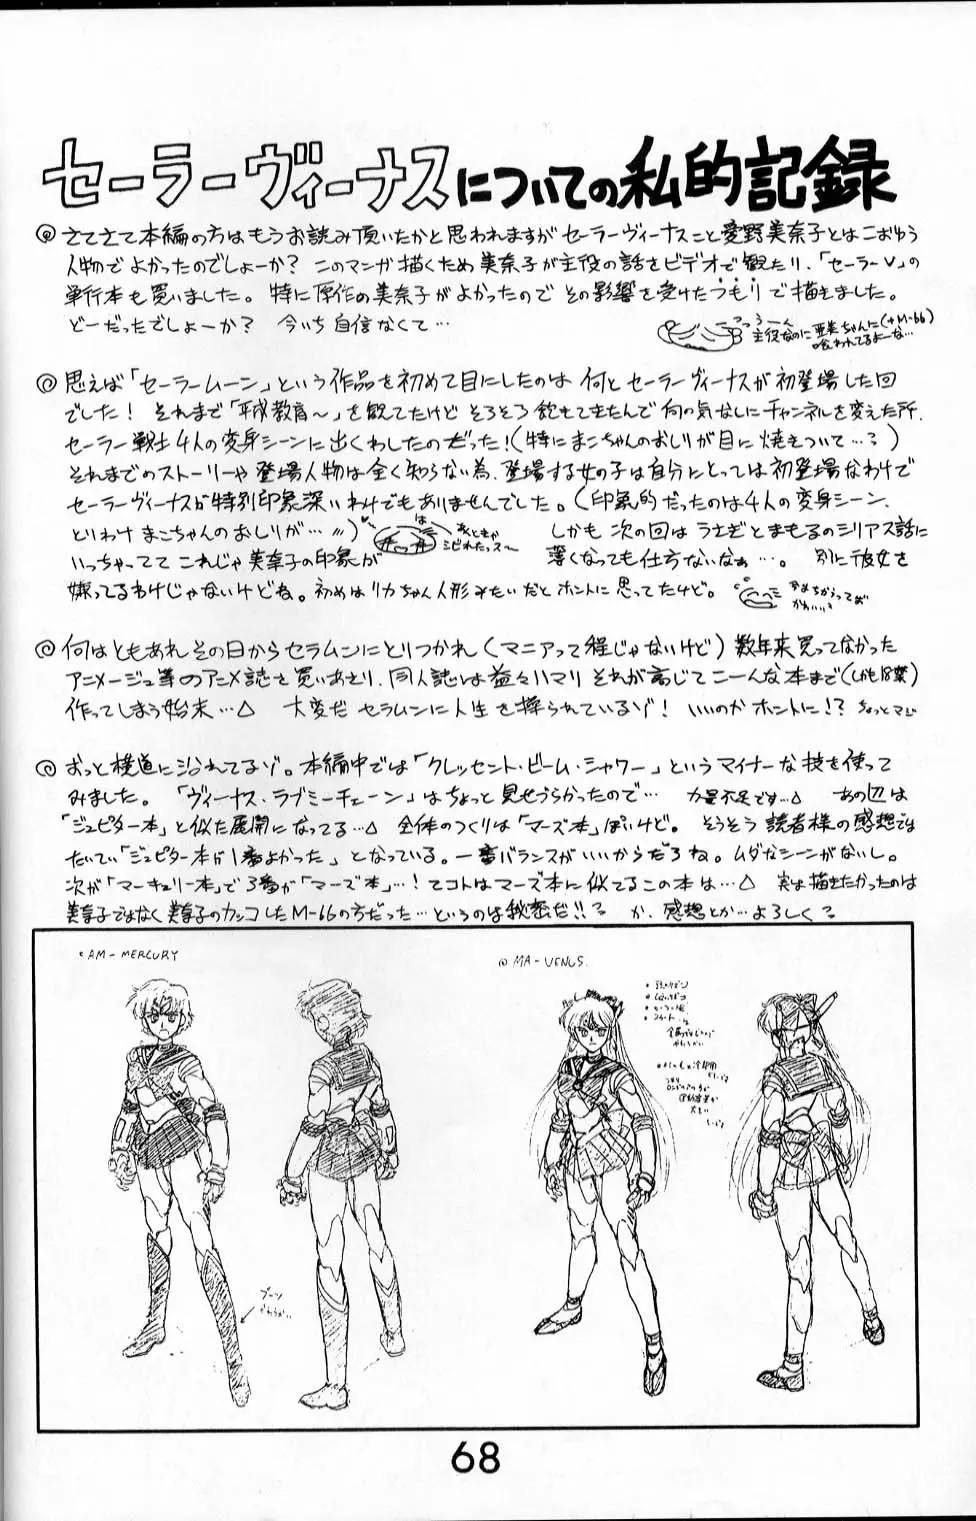 セーラーヴィーナスについての私的記録
◎ さてさて本編の方はもうお読み頂いたかと思われますがセーラーヴィーナスこと愛野美奈子とはこおゆう
人物でよかったのでしょーか? このマンガ描くため美奈子が主役の話をビデオで観たり、「セーラーV」の
単行本も買いました。特に原作の美奈子がよかったのでその影響を受けたつもりで描きました。
どーだったでしょーか? 今いち自信なくて…
主役なのに亜美ちゃんに(+M-66)
喰われてるよーな…
◎ 思えば「セーラームーン」という作品を初めて目にしたのは何とセーラーヴィーナスが初登場した回
でした! それまで「平成教育〜」を観てたけどそろそろ飽きてきたんで何の気なしにチャンネルを変えた所、
セーラー戦士4人の変身シーンに出くわしたのだった!(特にまこちゃんのおしりが目に焼きついて…?)
それまでのストーリーや登場人物は全く知らない為、登場する女の子は自分にとっては初登場なわけで
セーラーヴィーナスが特別印象深いわけでもありませんでした。(印象的だったのは4人の変身シーン、
とりわけまこちゃんのおしりが…) しかも次の回はうさぎとまもるのシリアス話に
いっちゃってて これじゃ美奈子の印象が薄くなっても仕方ないなぁ…。 別に彼女を
嫌ってるわけじゃないけどね。初めはリカちゃん人形みたいだとホントに思ってたけど。
◎ 何はともあれその日からセラムンにとりつかれ(マニアって程じゃないけど)数年来買ってなかった
アニメージュ等のアニメ誌を買いあさり、同人誌には益々ハマリそれが高じてこーんな本まで(しかも18禁)
作ってしまう始末…△ 大変だ セラムンに人生を操られているゾ! いいのかホントに!? ちょっとマジ
◎ おっと横道に沿れてるゾ。本編中では「クレッセント・ビーム・シャワー」というマイナーな技を使って
みました。「ヴィーナス・ラブミーチェーン」はちょっと見せづらかったので… 力量不足です…△ あの辺は
「ジュピター本」と似た展開になってる…△ 全体のつくりは「マーズ本」ぽいけど。そうそう読者様の感想では
だいたい「ジュピター本が1番よかった」となっている。一番バランスがいいからだろね。ムダなシーンがないし。
次が「マーキュリー本」で3番が「マーズ本」…! てコトはマーズ本に似てるこの本は…△ 実は描きたかったのは
美奈子ではなく美奈子のカッコしたM-66の方だった…というのは秘密だ!! か、感想とか…よろしく
AM-MERCURY
MA-VENUS.
ブーツ
68